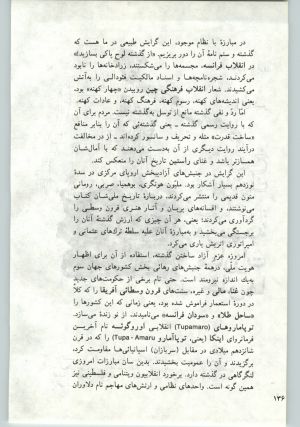 در مبارزهٔ با نظام موجود، این گرایش طبیعی در ما هست که
گذشته و ستم نامهٔ آن را دور بریزیم. «از گذشته لوح پاکی بسازید»
در انقلاب فرانسه، مجسمه‌ها را می‌شکستند، زرادخانه‌ها را نابود
می‌کردند، شجره‌نامه‌ها و اسناد مالکیت فئودالی را به‌آتش
می‌کشیدند. شعار انقلاب فرهنگی چین روبیدن «چهار کهنه» بود،
یعنی اندیشه‌های کهنه، رسوم کهنه، فرهنگ کهنه، و عادات کهنه.
امّا ردّ و نفی گذشته مانع از توسل به‌گذشته نیست. مردم برای آن
که با روایت رسمی گذشته ــ یعنی گذشته‌ئی که آن را بنابر منافع
«ساخت قدرت» مثله و تحریف و سانسور کرده‌اند ــ از در مخالفت
درآیند روایت دیگری از آن به‌دست می‌دهند که با آمال‌شان
همسازتر باشد و غنای راستین تاریخ آنان را منعکس کند.
این گرایش در جنبش‌های آزادیبخش اروپای مرکزی در سدهٔ
نوزدهم بسیار آشکار بود. ملیون هونگری، بوهمیا، صربی، رومانی
متون قدیمی را منتشر می‌کردند، دربارهٔ تاریخ ملی‌شان کتاب
می‌نوشتند، و افسانه‌های پریان و آثار هنری قرون وسطی را
گردآوری می‌کردند؛ یعنی، هر آن چیزی که ارزش گذشتهٔ آنان را
برجستگی می‌بخشید و به‌مبارزهٔ آنان علیه سلطهٔ ترک‌های عثمانی و
امپراتوری اتریش یاری می‌کرد.
امروزه عزم آزاد ساختن گذشته، استفاده از آن برای اظهار
هویت ملّی، درهمهٔ جنبش‌های رهائی بخش کشورهای جهان سوم
به‌یک اندازه نیرومند است. حتی نام برخی از حکومت‌های جدید
چون غنا، مالی و غیره، سنت‌های قرون وسطائی آفریقا را که کلاً
در دورهٔ استعمار فراموش شده بود، یعنی زمانی که این کشورها را
«ساحل طلا» و «سودان فرانسه» می‌نامیدند، از نو زنده می‌سازد.
توپاماروهای (Tupamaro) انقلابی اوروگوئه نام آخرین
فرمانروای اینکا (یعنی، توپاآمارو Tupa-Amaru) را که در قرن
شانزدهم میلادی در مقابل (سربازان) اسپانیائی‌ها مقاومت کرد،
برگزیدند و آن را عمومیت بخشیدند. بدین سان مبارزات امروزی
لنگرگاهی در گذشته دارد. برخورد انقلابیون ویتنامی و فلسطینی نیز
همین گونه است. واحدهای نظامی و ارتش‌های مهاجم نام دلاوران
۱۳۶